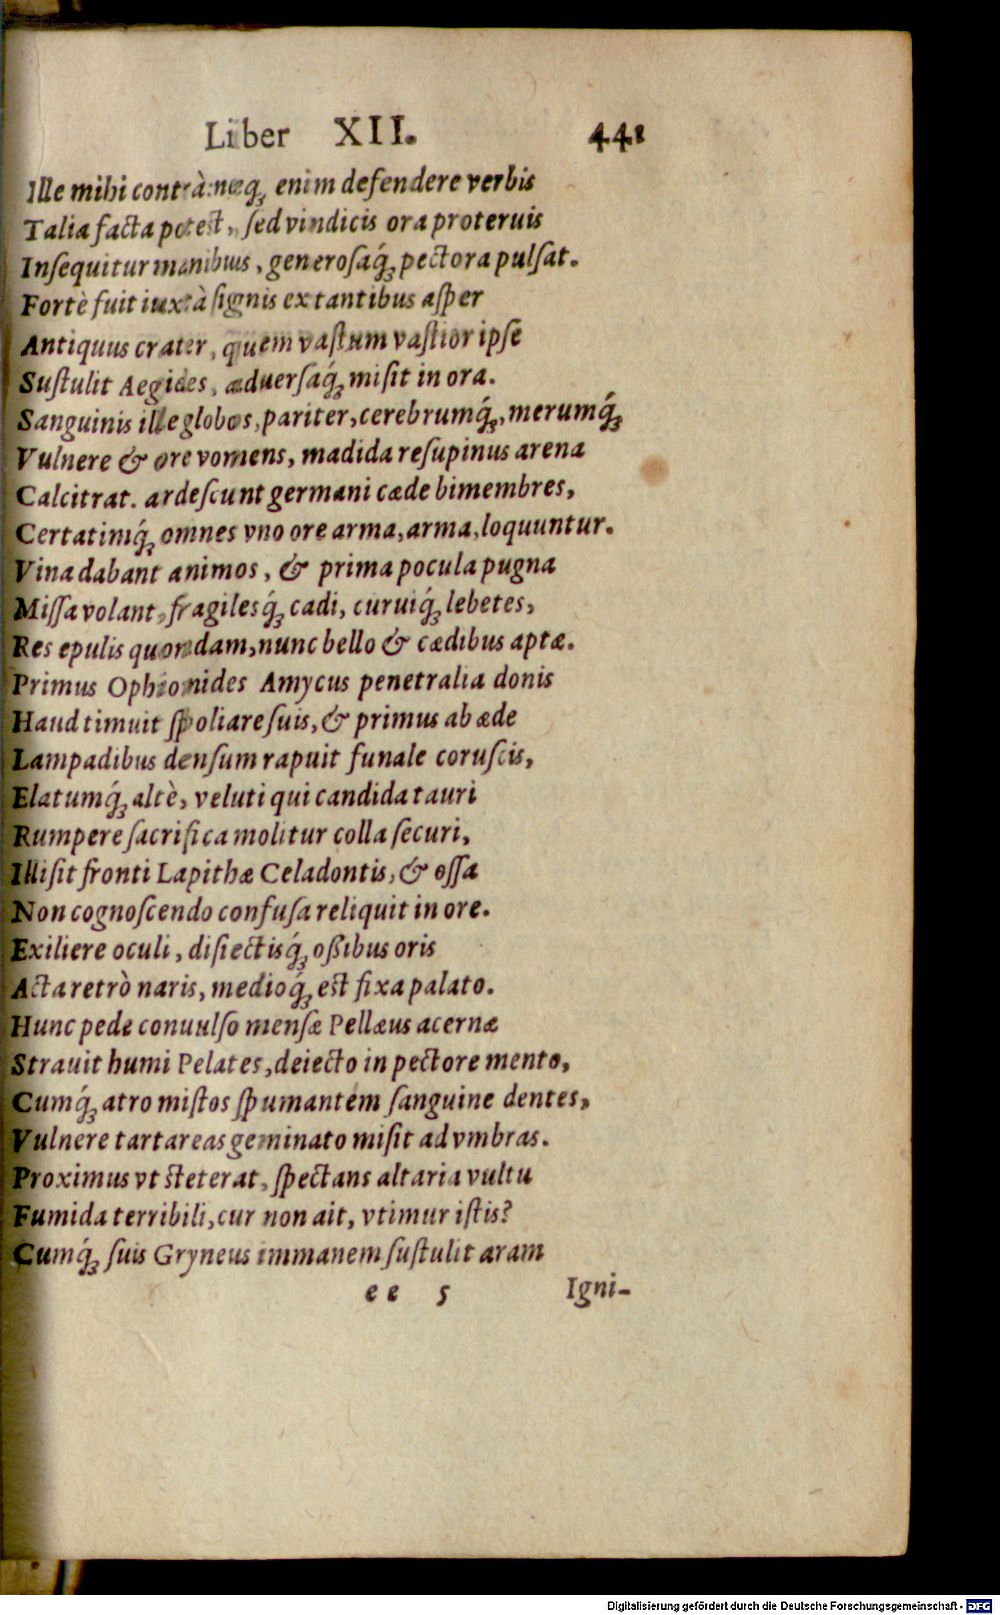 Liber XII. 441
Ille mihi contrà: neq́ꝫ enim defendere verbis
Talia facta potest, ſed vindicis ora proteruis
Inſequitur manibus, generoſaq́ꝫ pectora pulſat.
Fortè fuit iuxtà ſignis extantibus aſper
Antiquus crater, quem vaſtum vaſtior ipſe
Suſtulit Aegides, aduerſaq́ꝫ miſit in ora.
Sanguinis ille globos, pariter, cerebrumq́ꝫ, merumq́ꝫ
Vulnere & ore vomens, madida reſupinus arena
Calcitrat. ardeſcunt germani cæde bimembres,
Certatimq́ꝫ omnes vno ore arma, arma, loquuntur.
Vina dabant animos, & prima pocula pugna
Miſſa volant, fragilesq́ꝫ cadi, curuiq́ꝫ lebetes,
Res epulis quondam, nunc bello & cædibus aptæ.
Primus Ophionides Amycus penetralia donis
Haud timuit ſpoliare ſuis, & primus ab æde
Lampadibus denſum rapuit funale coruſcis,
Elatumq́ꝫ altè, veluti qui candida tauri
Rumpere ſacrifica molitur colla ſecuri,
Illiſit fronti Lapithæ Celadontis, & oſſa
Non cognoſcendo confuſa reliquit in ore.
Exiliere oculi, diſiectisq́ꝫ oßibus oris
Acta retrò naris, medioq́ꝫ est fixa palato.
Hunc pede conuulſo menſæ Pellæus acernæ
Strauit humi Pelates, deiecto in pectore mento,
Cumq́ꝫ atro miſtos ſpumantem ſanguine dentes,
Vulnere tartareas geminato miſit ad vmbras.
Proximus vt ſteterat, ſpectans altaria vultu
Fumida terribili, cur non ait, vtimur iſtis?
Cumq́ꝫ ſuis Gryneus immanem ſuſtulit aram
ee 5 Igni-
Digitalisierung gefördert durch die Deutsche Forschungsgemeinschaft - DFG